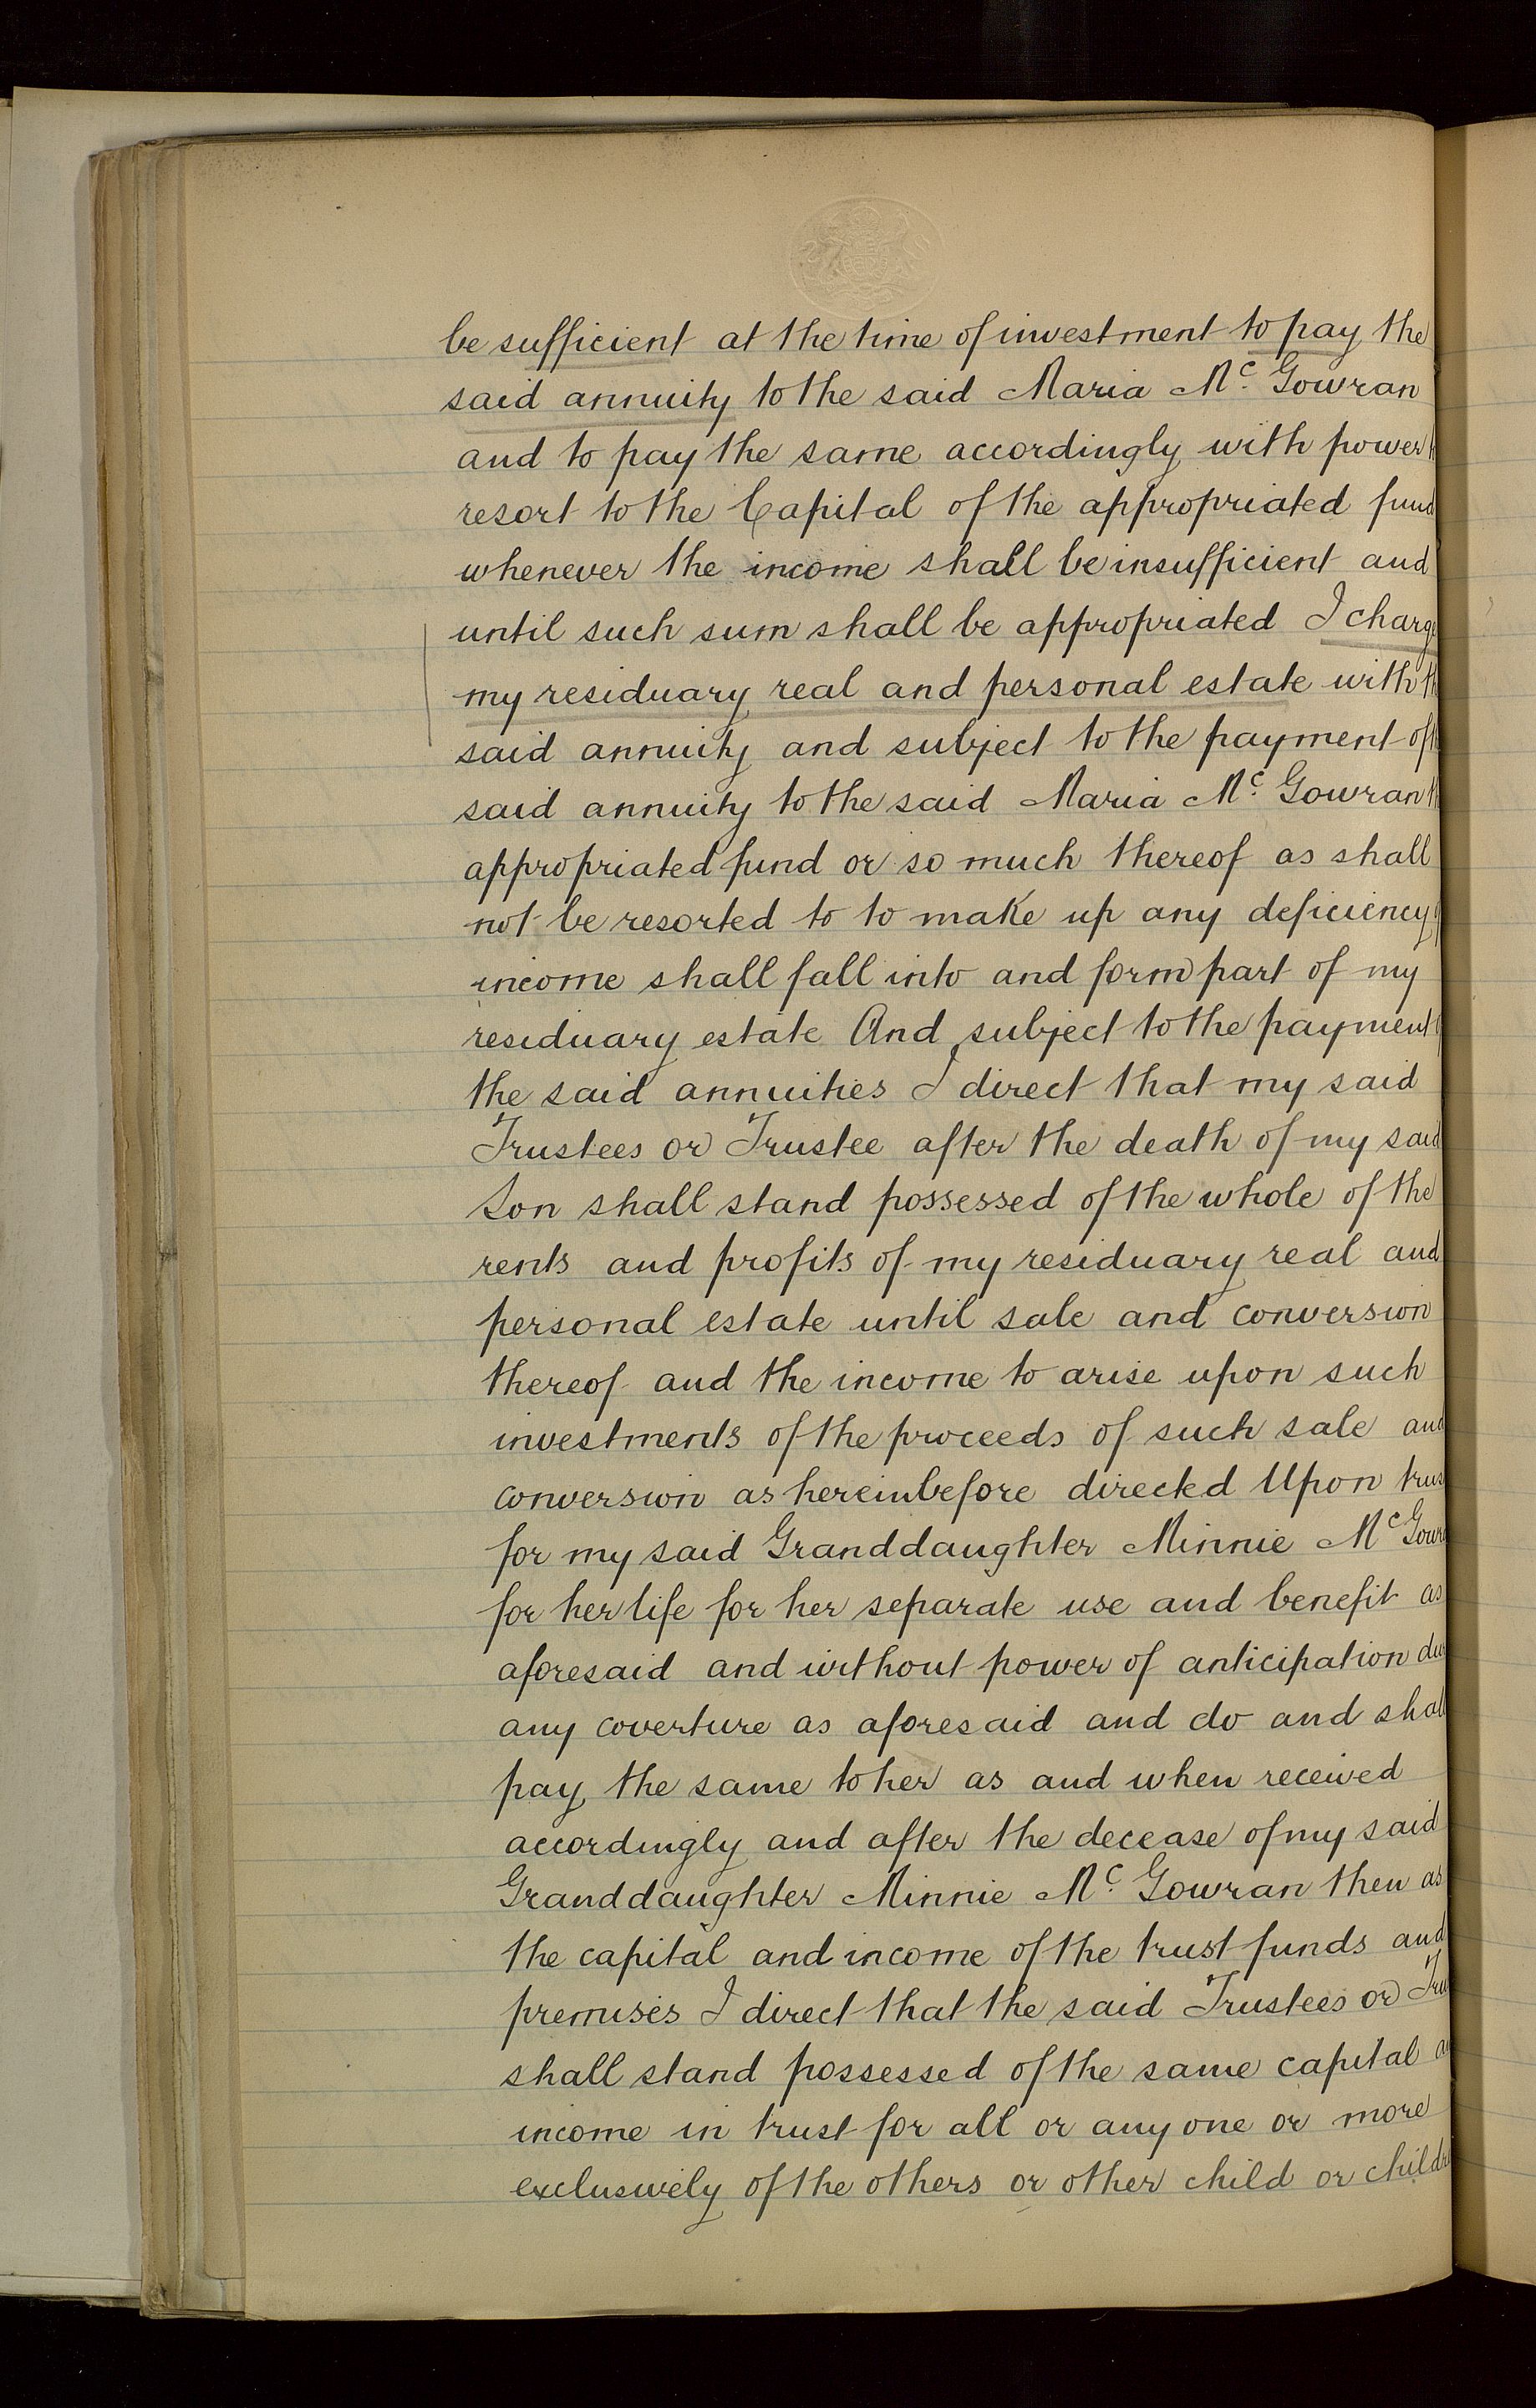 be sufficient at the time of investment to pay the
said annuity to the said Maria Mc. Gowran
and to pay the same accordingly with power
resort to the Capital of the appropriated fund
whenever the income shall be insufficient and
until such sum shall be appropriated I charge
my residuary real and personal estate with
said annuity and subject to the payment of
said annuity to the said Maria Mc. Gowran
appropriated fund or so much thereof as shall
not be resorted to to make up any deficiency
income shall fall into and form part of my
residuary estate And subject to the payment
the said annuities I direct that my said
Trustees or Trustee after the death of my said
Son shall stand possessed of the whole of the
rents and profits of my residuary real and
personal estate until sale and conversion
thereof and the income to arise upon such
investments of the proceeds of such sale and
conversion as hereinbefore directed Upon trus
for my said Granddaughter Minnie Mc Gowr
for her life for her separate use and benefit as
aforesaid and without power of anticipation du
any coverture as aforesaid and do and shall
pay the same to her as and when received
accordingly and after the decease of my said
Granddaughter Minnie Mc. Gowran then as
the capital and income of the trust funds and
premises I direct that the said Trustees or Tru
shall stand possessed of the same capital a
income in trust for all or any one or more
exclusively of the others or other child or childr